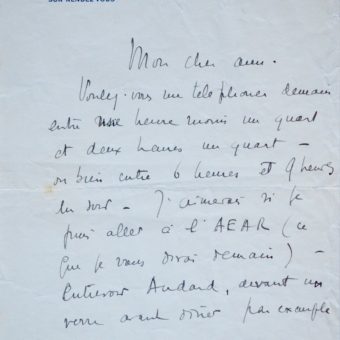 SUR RENDEZ-VOUS
Mon cher ami.
Voulez-vous me téléphoner demain
entre une heure moins un quart
et deux heures un quart –
ou bien entre 6 heures et 9 heures
du soir – J'aimerais si je
puis aller à l'AEAR (ce
que je vous dirai demain) –
Entrevoir Audard, devant un
verre avant dîner par exemple